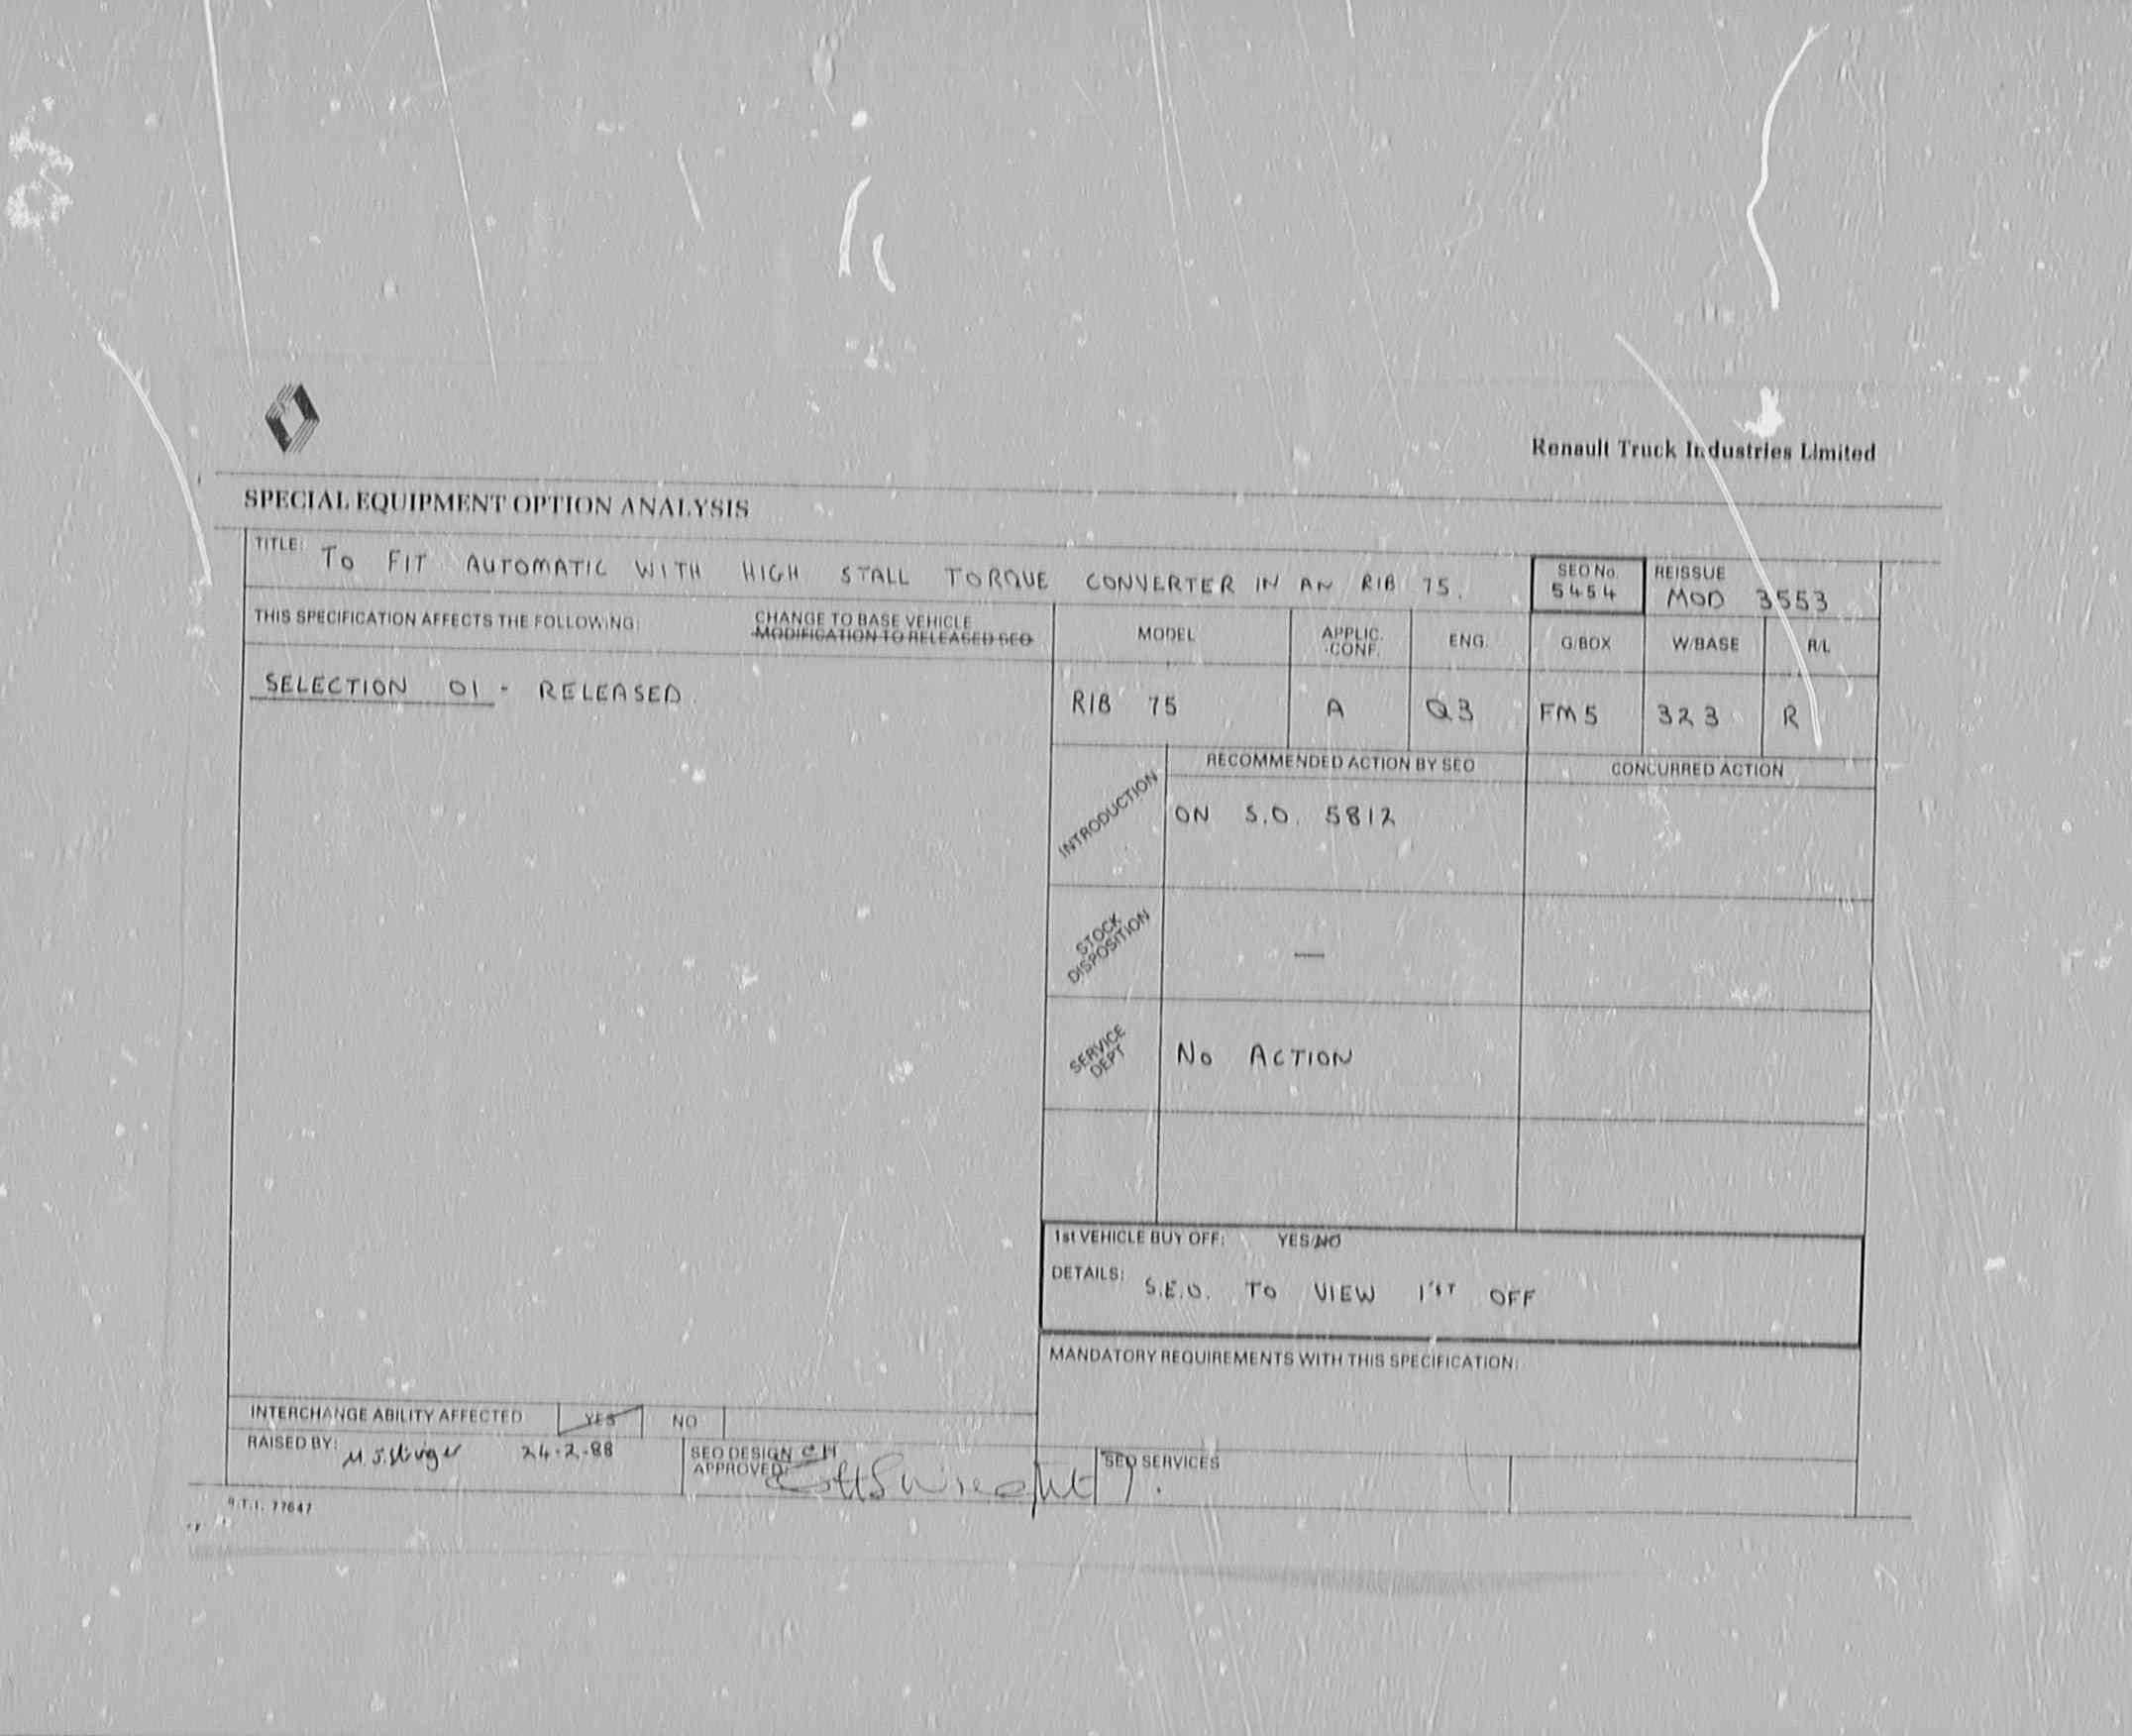 Renault Truck Industries Limited
SPECIAL EQUIPMENT OPTION ANALYSIS
TITLE: TO FIT AUTOMATIC WITH HIGH STALL TORQUE CONVERTER IN AN RIB 75.
SEO No. 5454
REISSUE MOD 3553
THIS SPECIFICATION AFFECTS THE FOLLOWING:
CHANGE TO BASE VEHICLE
MODIFICATION TO RELEASED SEO
MODEL APPLIC. CONF. ENG. G/BOX W/BASE R/L
SELECTION 01 - RELEASED
RIB 75 A Q3 FM5 323 R
RECOMMENDED ACTION BY SEO CONCURRED ACTION
INTRODUCTION ON S.O. 5812
STOCK DISPOSITION —
SERVICE DEPT No ACTION
1st VEHICLE BUY OFF: YES/NO
DETAILS: S.E.O. TO VIEW 1'ST OFF
MANDATORY REQUIREMENTS WITH THIS SPECIFICATION:
INTERCHANGE ABILITY AFFECTED YES NO
RAISED BY: 24-2-88
SEO DESIGN APPROVED:
SEO SERVICES
R.T.I. 77647